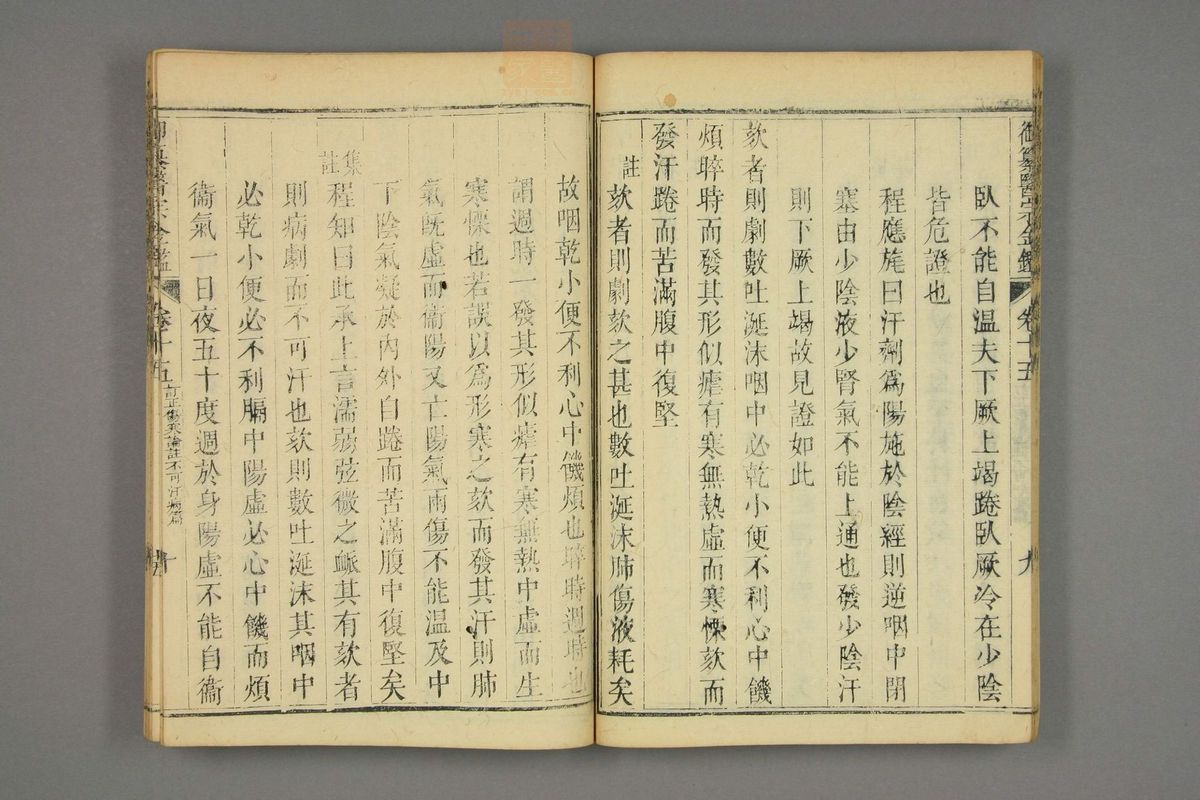 御纂醫宗金鑑
卷十五
九
臥不能自温夫下厥上竭踡臥厥冷在少陰
皆危證也
程應旄曰汗劑爲陽施於陰經則逆咽中閉
塞由少陰液少腎氣不能上通也發少陰汗
則下厥上竭故見證如此
欬者則劇數吐涎沫咽中必乾小便不利心中饑
煩晬時而發其形似瘧有寒無熱虛而寒慄欬而
發汗踡而苦滿腹中復堅
註
欬者則劇欬之甚也數吐涎沫肺傷液耗矣
故咽乾小便不利心中饑煩也晬時週時也
謂週時一發其形似瘧有寒無熱中虛而生
寒慄也若誤以爲形寒之欬而發其汗則肺
氣旣虛而衞陽又亡陽氣兩傷不能温及中
下陰氣凝於內外自踡而苦滿腹中復堅矣
集註
程知曰此承上言濡弱弦微之脈其有欬者
則病劇而不可汗也欬則數吐涎沫其咽中
必乾小便必不利膈中陽虛必心中饑而煩
衞氣一日夜五十度週於身陽虛不能自衞
御纂醫宗金鑑
卷十五
訂正傷寒論註不可汗病篇
十